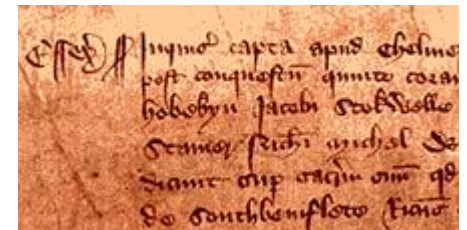 Essex Inquis' capta apud Chelmes
post conquestu quinto coram
hobekyn Jacobi Stokwelle
Stamer Rich michel de
dicunt sup sacrm suu qd
de Southbemflete Ricus